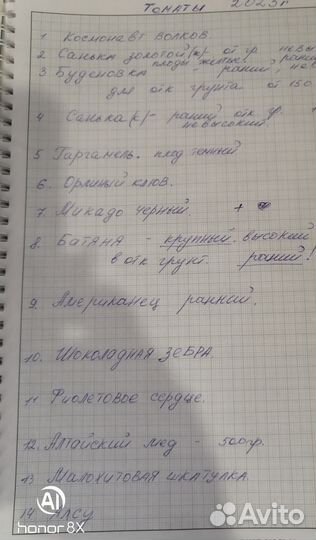 Томаты 2023г
1 Космонавт Волков.
2 Санька золотой(ж) от гр. невы
плоды желтые. ранн
3 Буденовка ранний, не
для отк грунта от 150
4 Санька(к) - ранний отк гр.
невысокий
5 Гаргамель. плод темный
6. Орлиный клюв.
7. Микадо черный. +
8. Батяня - крупный. высокий
в отк грунт. ранний!
9. Американец ранний.
10. Шоколадная зебра.
11 Фиолетовое сердце.
12. Алтайский мед - 500гр.
13 Малохитовая шкатулка.
14 Алсу
AI
honor 8X
Avito